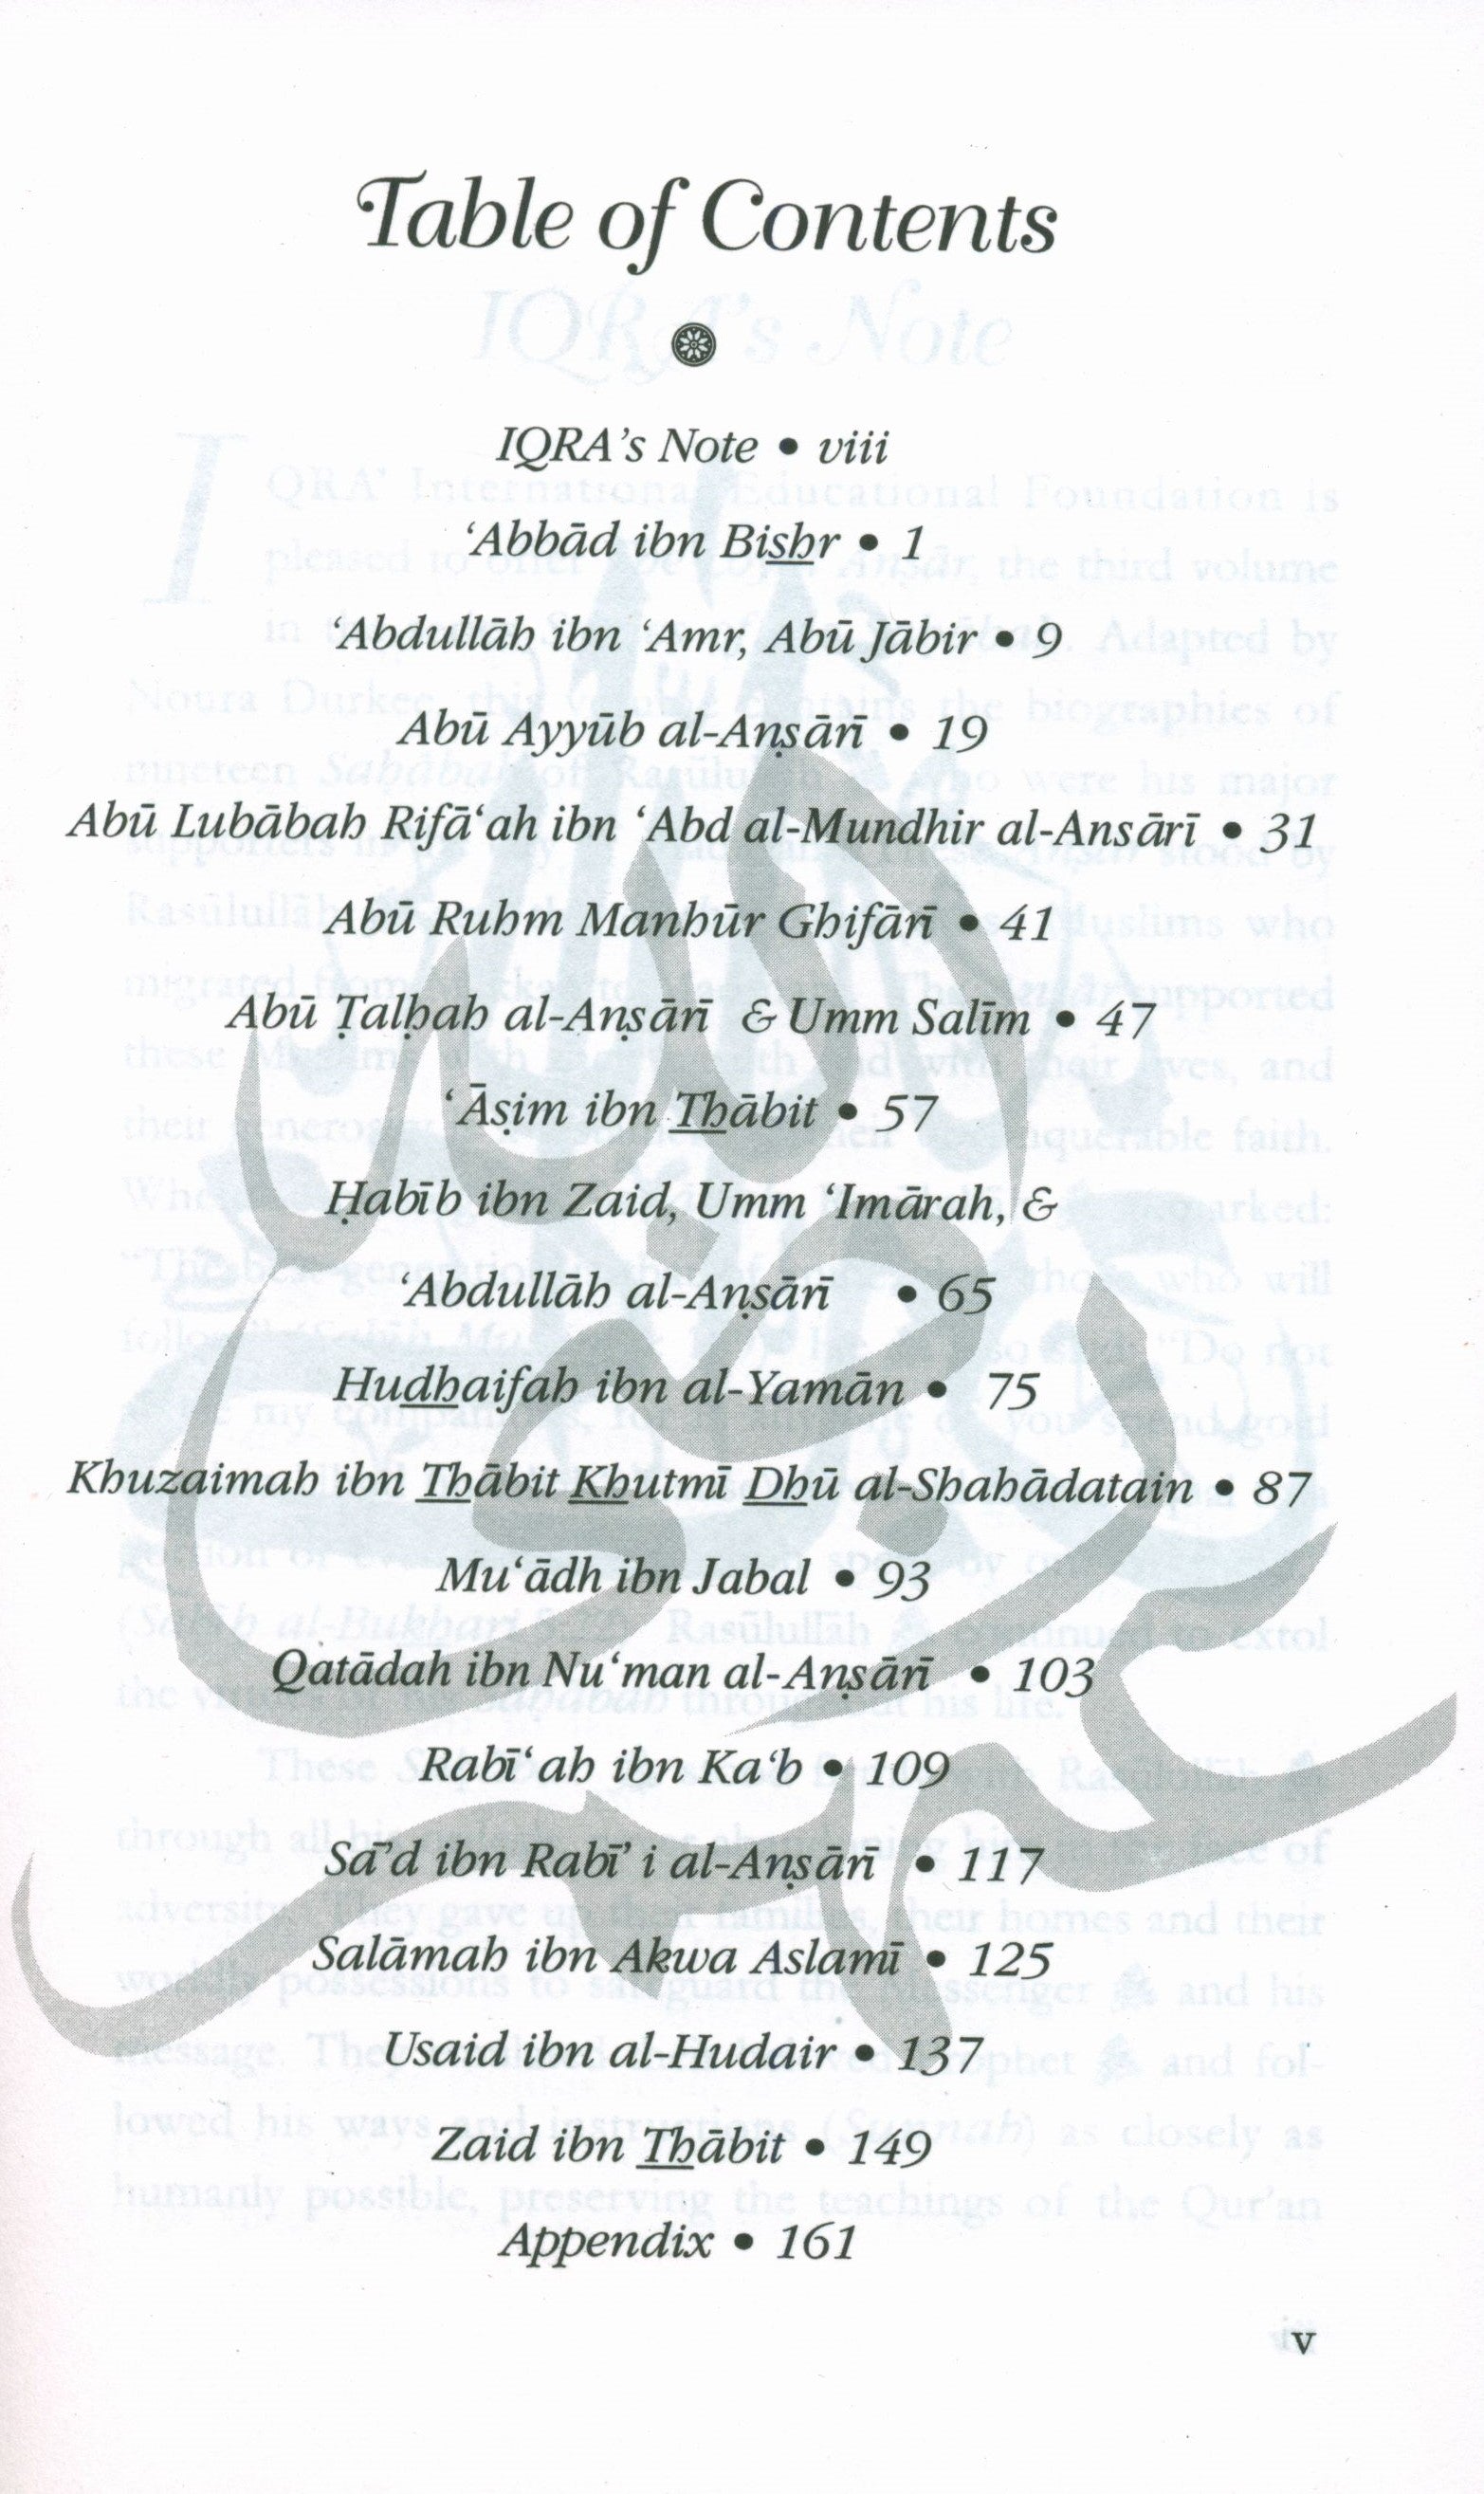 Table of Contents
IQRA's Note • viii
‘Abbād ibn Bishr • 1
‘Abdullāh ibn ‘Amr, Abū Jābir • 9
Abū Ayyūb al-Anṣārī • 19
Abū Lubābah Rifā‘ah ibn ‘Abd al-Mundhir al-Ansārī • 31
Abū Ruhm Manhūr Ghifārī • 41
Abū Ṭalḥah al-Anṣārī & Umm Salīm • 47
‘Āṣim ibn Thābit • 57
Ḥabīb ibn Zaid, Umm ‘Imārah, &
‘Abdullāh al-Anṣārī • 65
Hudhaifah ibn al-Yamān • 75
Khuzaimah ibn Thābit Khutmī Dhū al-Shahādatain • 87
Mu‘ādh ibn Jabal • 93
Qatādah ibn Nu‘man al-Anṣārī • 103
Rabī‘ah ibn Ka‘b • 109
Sā’d ibn Rabī’ i al-Anṣārī • 117
Salāmah ibn Akwa Aslamī • 125
Usaid ibn al-Hudair • 137
Zaid ibn Thābit • 149
Appendix • 161
v